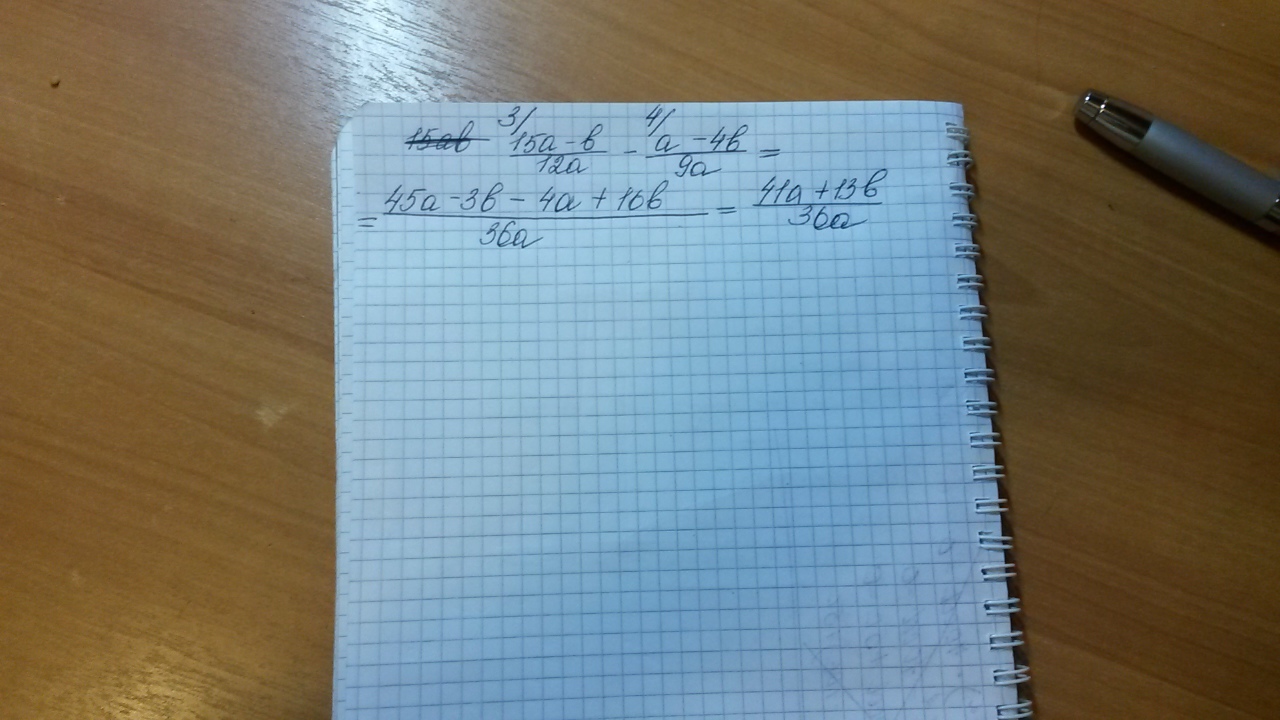 15ab 3/ 15a - b / 12a - 4/ a - 4b / 9a =
= 45a - 3b - 4a + 16b / 36a = 41a + 13b / 36a